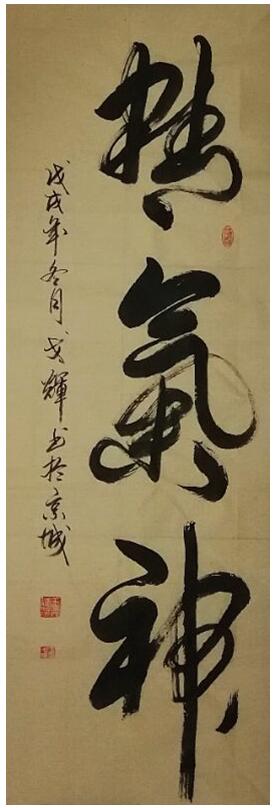 精氣神
戊戌年冬月戈輝书於京城